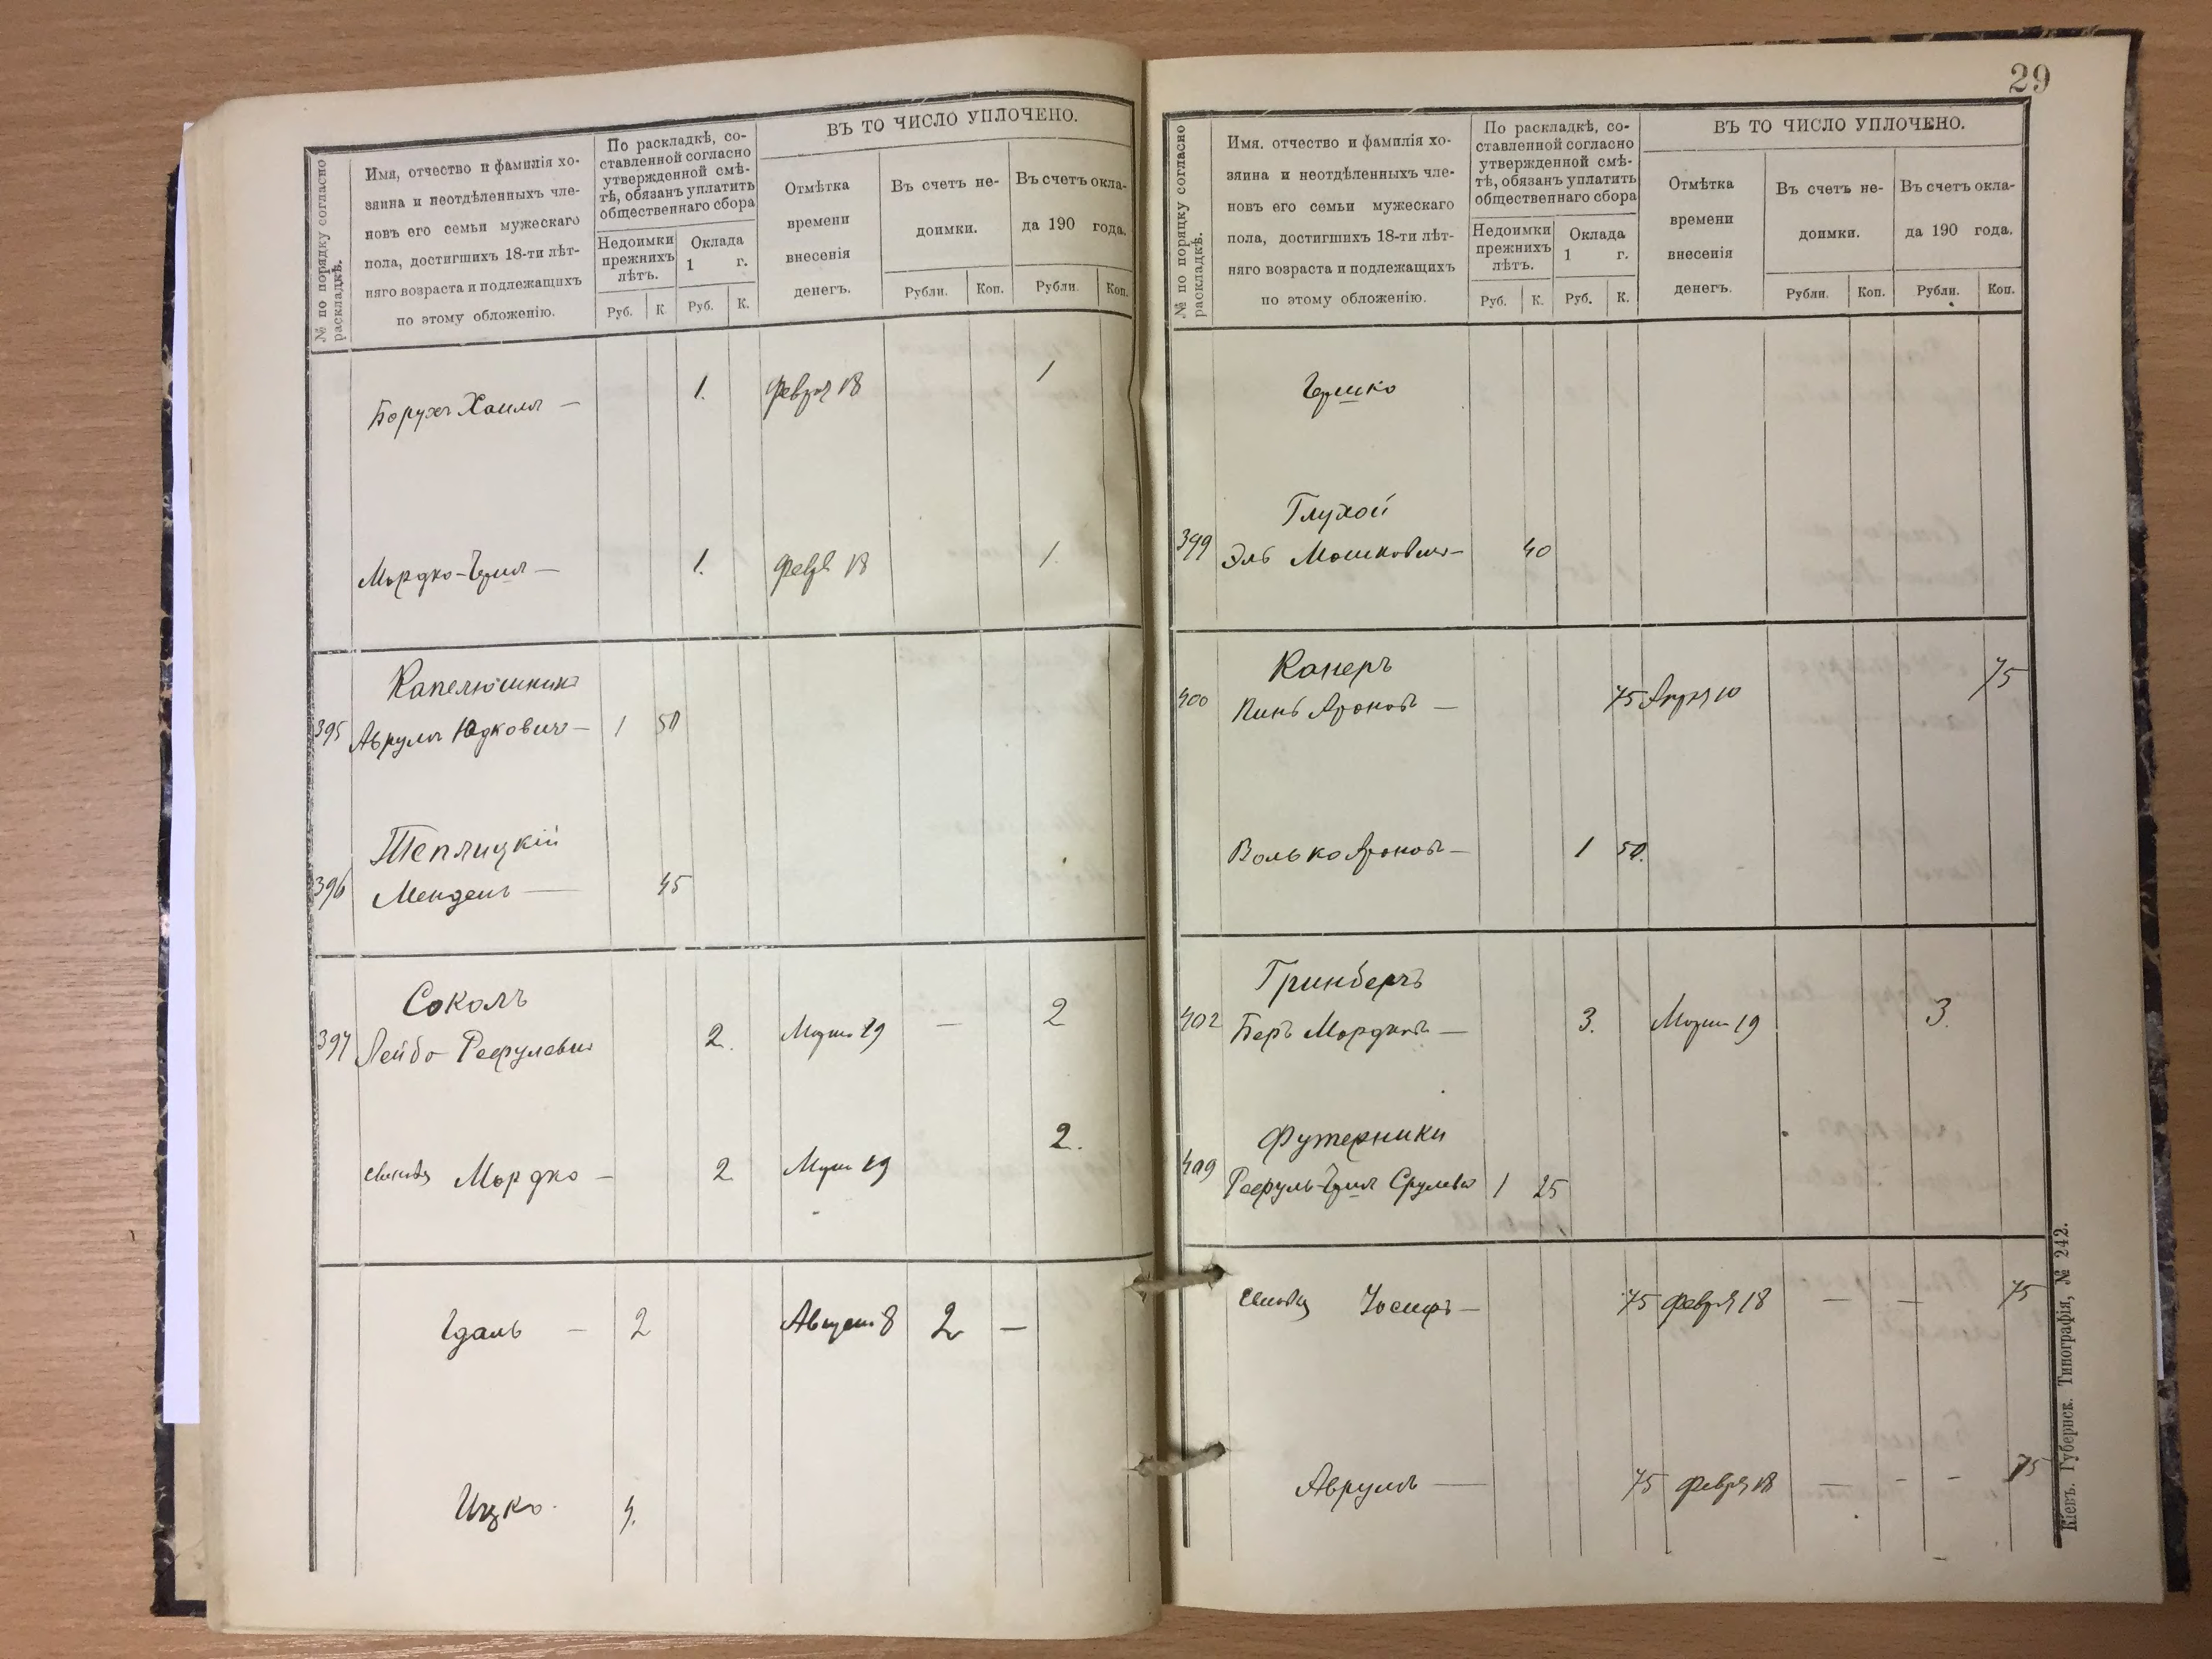 № по порядку согласно раскладкѣ.
Имя, отчество и фамилія хо-
зяина и неотдѣленныхъ чле-
новъ его семьи мужескаго
пола, достигшихъ 18-ти лѣт-
няго возраста и подлежащихъ
по этому обложенію.
По раскладкѣ, со-
ставленной согласно
утвержденной смѣ-
тѣ, обязанъ уплатить
общественнаго сбора
Недоимки
прежнихъ
лѣтъ.
Оклада
1 г.
Руб. К. Руб. К.
ВЪ ТО ЧИСЛО УПЛОЧЕНО.
Отмѣтка
времени
внесенія
денегъ.
Въ счетъ не-
доимки.
Въ счетъ окла-
да 190 года.
Рубли. Коп. Рубли. Коп.
Борухъ Хаимъ — 1. Февр 18 1
Мордко- — 1. Февр 18 1.
Капелюшникъ
395 Аврумъ Юдковичъ — 1 50
Теплицкій
396 Мендель — 45
Соколъ
397 Лейбо Рефулевич 2. Марта 19 — 2
Мордко — 2 Марта 19 2.
— 2 Августа 8 2 —
Ицко 4.
29
№ по порядку согласно раскладкѣ.
Имя. отчество и фамилія хо-
зяина и неотдѣленныхъ чле-
новъ его семьи мужескаго
пола, достигшихъ 18-ти лѣт-
няго возраста и подлежащихъ
по этому обложенію.
По раскладкѣ, со-
ставленной согласно
утвержденной смѣ-
тѣ, обязанъ уплатить
общественнаго сбора
Недоимки
прежнихъ
лѣтъ.
Оклада
1 г.
Руб. К. Руб. К.
ВЪ ТО ЧИСЛО УПЛОЧЕНО.
Отмѣтка
времени
внесенія
денегъ.
Въ счетъ не-
доимки.
Въ счетъ окла-
да 190 года.
Рубли. Коп. Рубли. Коп.
Гершко
Глухой
399 Эль Мошкович — 40
Канеръ
400 Пинь Аронов — 75 Апр 10 75
Волько Аронов — 1 50.
Гринбергъ
402 Беръ Мордков — 3. Марта 19 3.
Футерники
409 Рефуль- Срулевъ 1 25
Іосифъ — 75 Февр 18 — — 75
Аврумъ — 75 Февр 18 — - - 75
Кіевъ. Губернск. Типографія, № 242.